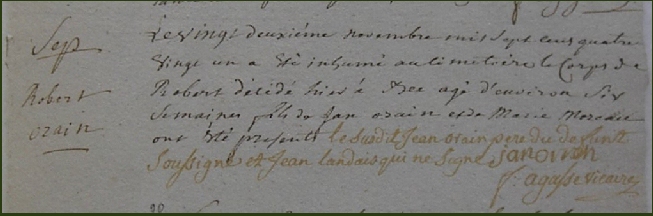 Sept
Robert
orain
Le vingt deuxiéme novembre mil sept cens quatre
vingt un a été inhumé au cimetoire le Corps de
Robert décédé hier à agé d'environ six
Semaines fils de Jan orain et de Marie
ont été présents le susdit Jean orain pere du defunt
Soussigne et Jean Landais qui ne signe jan orain
agasse vicaire